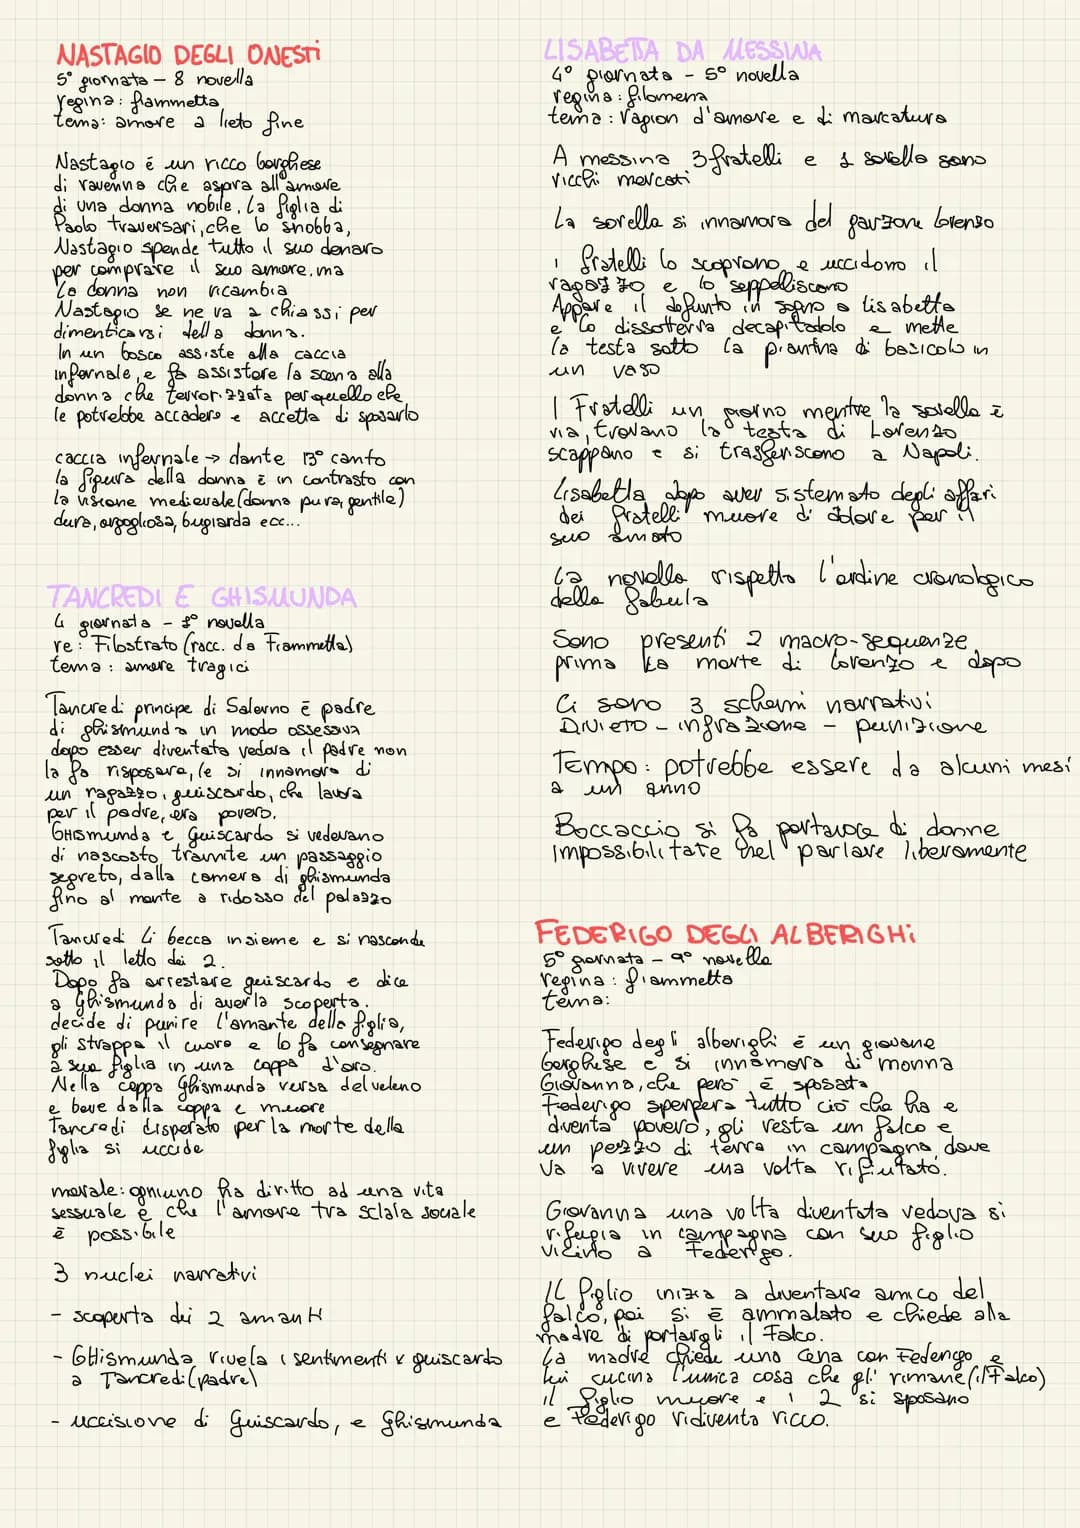 NASTAGIO DEGLI ONESTi
5° giornata - 8 novella
regina: fiammetta
tema: amore a lieto fine
Nastagio é un ricco borghese
di ravenna che aspira all'amore
di una donna nobile, la figlia di
Paolo traversari, che lo snobba,
Nastagio spende tutto il suo denaro
per comprare il suo amore, ma
la donna non ricambia
Nastagio se ne va a chiassi per
dimenticarsi della donna.
In un bosco assiste alla caccia
infernale, e fa assistere la scena alla
donna che terrorizzata per quello che
le potrebbe accadere e accetta di sposarlo
caccia infernale → dante 13° canto
la figura della donna è in contrasto con
la visione medievale (donna pura, gentile)
dura, orgogliosa, bugiarda ecc...
TANCREDI E GHISMUNDA
4 giornata - 1° novella
re: Filostrato (racc. da Fiammetta)
tema: amore tragici
Tancredi principe di Salerno è padre
di ghismunda in modo ossessiva
dopo esser diventata vedova il padre non
la fa risposare, le si innamora di
un ragazzo, guiscardo, che lavora
per il padre, era povero.
GHismunda e Guiscardo si vedevano
di nascosto tramite un passaggio
segreto, dalla camera di ghismunda
fino al monte a ridosso del palazzo
Tancredi li becca insieme e si nasconde
sotto il letto dei 2.
Dopo fa arrestare guiscardo e dice
a Ghismunda di averla scoperta.
decide di punire l'amante della figlia,
gli strappa il cuore e lo fa consegnare
a sua figlia in una coppa d'oro.
Nella coppa Ghismunda versa del veleno
e beve dalla coppa e muore
Tancredi disperato per la morte della
figlia si uccide
morale: ogniuno ha diritto ad una vita
sessuale e che l'amore tra sclala sociale
è possibile
3 nuclei narrativi
- scoperta dei 2 amanti
- GHismunda rivela i sentimenti x guiscardo
a Tancredi (padre)
- uccisione di Guiscardo, e Ghismunda
LISABETTA DA MESSINA
4° giornata - 5° novella
regina: filomena
tema: ragion d'amore e di marcatura
A messina 3 fratelli e 1 sorella sono
ricchi mercati
La sorella si innamora del garzone lorenzo
i fratelli lo scoprono e uccidono il
ragazzo e lo seppelliscono
Appare il defunto in sogno a lisabetta
e lo dissotterra decapitadolo e mette
la testa sotto la piantina di basicolo in
un vaso
I Fratelli un giorno mentre la sorella è
via, trovano la testa di Lorenzo,
scappano e si trasferiscono a Napoli.
Lisabetta dopo aver sistemato degli affari
dei fratelli muore di dolore per il
suo amato
La novella rispetta l'ordine cronologico
della fabula
Sono presenti 2 macro-sequenze,
prima La morte di lorenzo e dopo
Ci sono 3 schemi narrativi
DIVIETO - infrazione - punizione
Tempo: potrebbe essere da alcuni mesi
a un anno
Boccaccio si fa portavoce di donne
impossibilitate nel parlare liberamente
FEDERIGO DEGLI ALBERIGHi
5° giornata - 9° novella
regina: fiammetta
tema:
Federigo degli alberighi è un giovane
borghese e si innamora di monna
Giovanna, che però è sposata
Federigo sperpera tutto ciò che ha e
diventa povero, gli resta un falco e
un pezzo di terra in campagna, dove
va a vivere una volta rifiutato.
Giovanna una volta diventata vedova si
rifugia in campagna con suo figlio
vicino a Federigo.
Il figlio inizia a diventare amico del
falco, poi si è ammalato e chiede alla
madre di portargli il Falco.
La madre chiede una cena con Federigo e
lui cucina l'unica cosa che gli rimane (il Falco)
il figlio muore e i 2 si sposano
e Federigo ridiventa ricco.